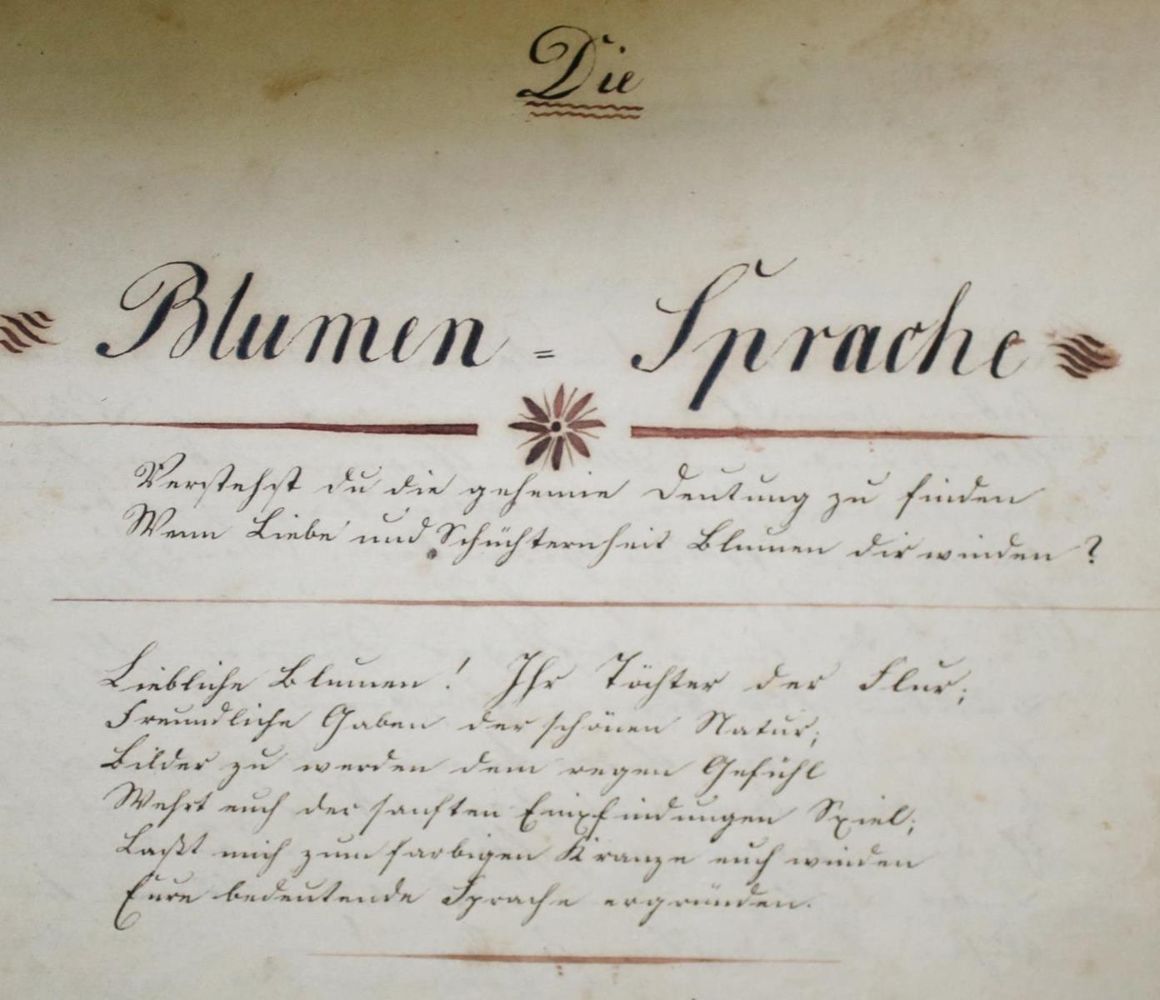 Die
Blumen = Sprache
Verstehst du die geheime Deutung zu finden
Wenn Liebe und Schüchternheit Blumen dir winden ?
Liebliche Blumen ! Ihr Töchter der Flur;
Freundliche Gaben der schönen Natur;
Bilder zu werden dem regen Gefühl
Wehrt euch der sanften Empfindungen Spiel;
Laßt mich zum farbigen Kranze euch winden
Eure bedeutende Sprache ergründen.